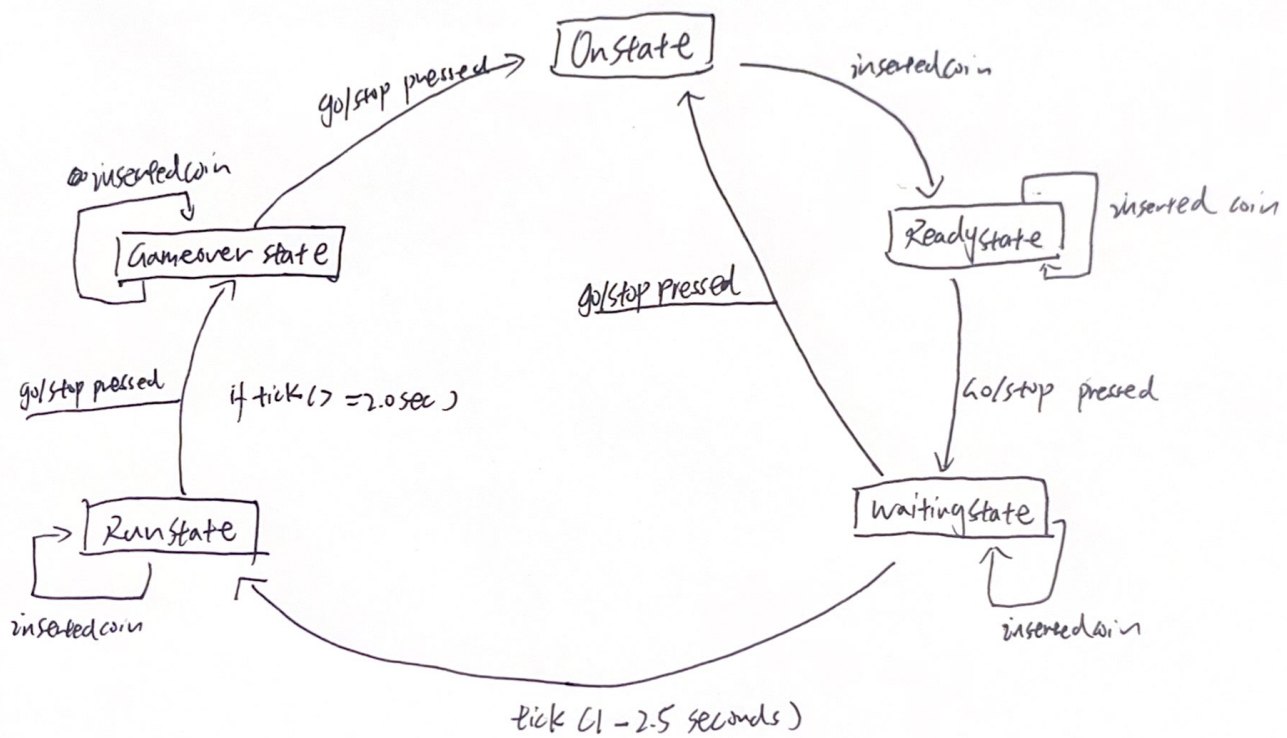 OnState
insertedcoin
go/stop pressed
insertedcoin
Gameover state
Readystate
inserted coin
go/stop pressed
go/stop pressed
if tick(>=2.0sec)
Go/stop pressed
RunState
waitingstate
insertedcoin
insertedcoin
tick (1-2.5 seconds)